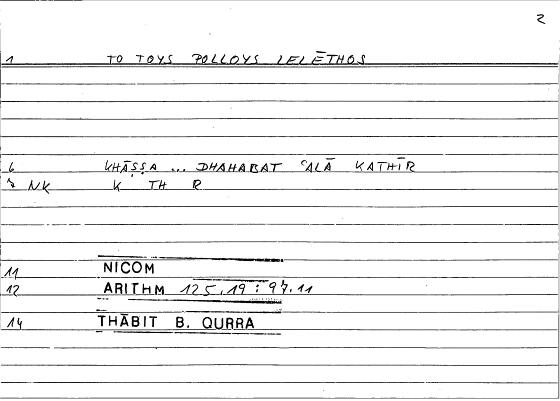 2
1 TO TOYS POLLOYS LELĒTHOS
6 KHĀṢṢA ... DHAHABAT ʿALĀ KATHĪR
NK K TH R
11 NICOM
12 ARITHM 125,19 : 97.11
14 THĀBIT B. QURRA